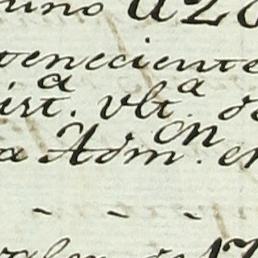 uno a 20
teneciente
ist.ª vlt.ª de
a Adm.on en
- - -
valen de 17